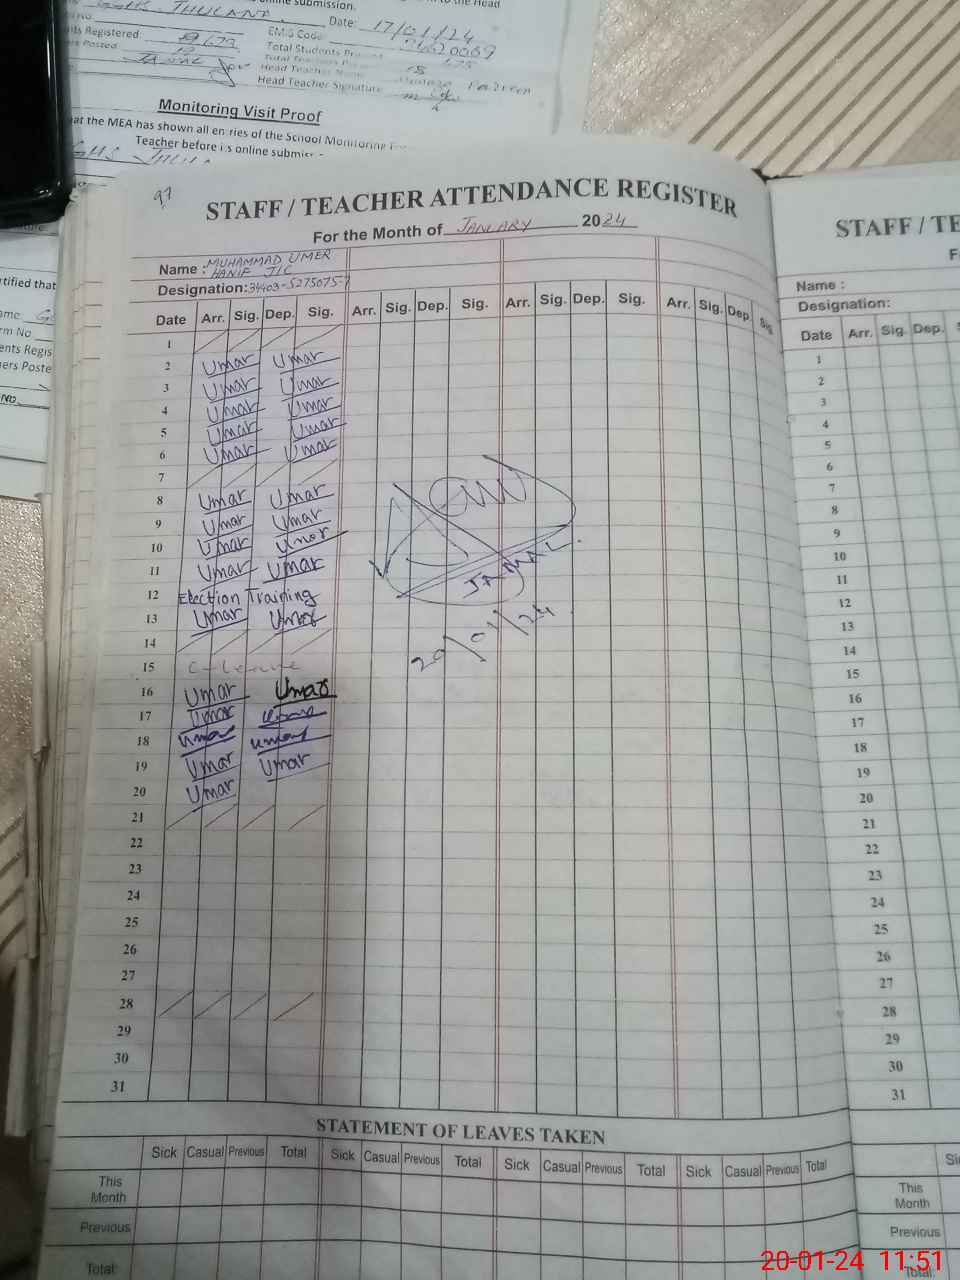 Date: 17/01/24
EMIS Code
Total Students
Head Teacher Signature
Monitoring Visit Proof
at the MEA has shown all entries of the School Monitoring
Teacher before its online
97
STAFF / TEACHER ATTENDANCE REGISTER
For the Month of JANUARY 2024
Name : MUHAMMAD UMER
HANIF JIC
Designation: 34403-5275075-7
Date Arr. Sig. Dep. Sig. Arr. Sig. Dep. Sig. Arr. Sig. Dep. Sig. Arr. Sig. Dep. Sig.
1
2 Umar Umar
3 Umar Umar
4 Umar Umar
5 Umar Umar
6 Umar Umar
7
8 Umar Umar
9 Umar Umar
10 Umar Umar
11 Umar Umar
12 Election Training
13 Umar Umar
14
15 C-Leave
16 Umar Umar
17 Umar Umar
18 Umar Umar
19 Umar Umar
20 Umar
21
22
23
24
25
26
27
28
29
30
31
JAMAL.
20/01/24.
STATEMENT OF LEAVES TAKEN
Sick Casual Previous Total Sick Casual Previous Total Sick Casual Previous Total Sick Casual Previous Total
This Month
Previous
Total:
STAFF / TE
Name :
Designation:
Date Arr. Sig. Dep.
1
2
3
4
5
6
7
8
9
10
11
12
13
14
15
16
17
18
19
20
21
22
23
24
25
26
27
28
29
30
31
This Month
Previous
Total:
20-01-24 11:51